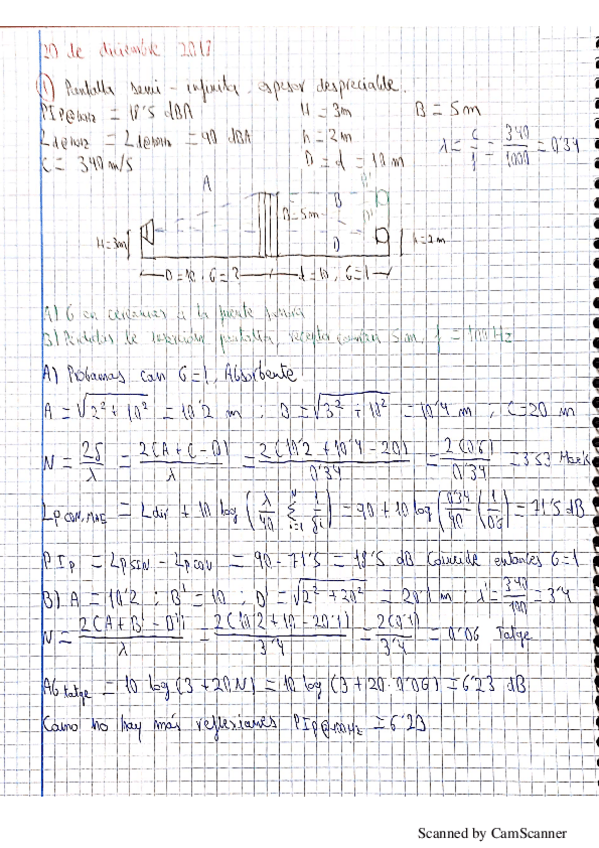 20 de diciembre 2017
① Pantalla semi-infinita, espesor despreciable.
PIP@1kHz = 18'5 dBA H = 3m B = 5m
Ld@1kHz = Ld@100Hz = 90 dBA h = 2m λ = c/f = 340/1000 = 0'34
C = 340 m/s D = d = 10 m
A B B'
H=3m B=5m D D' h=2m
D=10, G=? d=10, G=1
A) G en cercanías a la fuente
B) Pérdidas de inserción pantalla, receptor con 5m, f = 100 Hz
A) Probamos con G=1, Absorbente
A = √2² + 10² = 10'2 m ; B = √3² + 10² = 10'4 m ; C=20 m
N = 2δ/λ = 2(A + C - D)/λ = 2(10'2 + 10'4 - 20)/0'34 = 2(0'6)/0'34 = 3'53
Lp = Ldir + 10 log (λ/40 Σ 1/δi) = 90 + 10 log (0'34/40 (1/0'6)) = 71'5 dB
PIP = LpSIN - LpCON = 90 - 71'5 = 18'5 dB Coincide entonces G=1
B) A = 10'2 ; B' = 10 ; D' = √2² + 20² = 20'1 m ; λ' = 340/100 = 3'4
N = 2(A + B' - D')/λ = 2(10'2 + 10 - 20'1)/3'4 = 2(0'1)/3'4 = 0'06 Tatge
AG tatge = 10 log (3 + 20N) = 10 log (3 + 20·0'06) = 6'23 dB
Como no hay más reflexiones PIP@100Hz = 6'23
Scanned by CamScanner